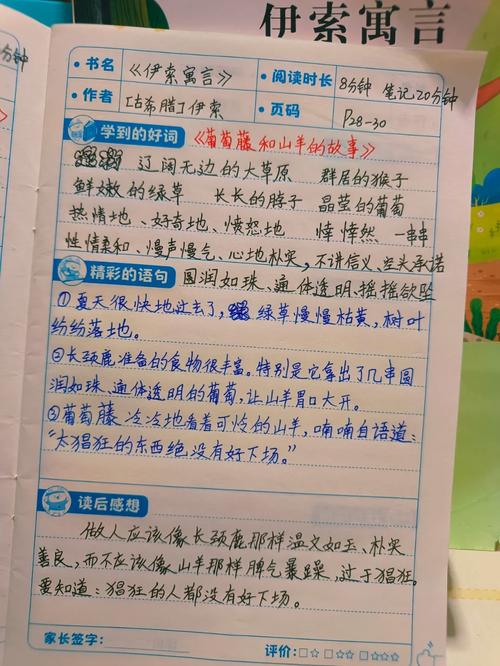 伊索寓言
分钟
书名 《伊索寓言》 阅读时长 8分钟 笔记20分钟
作者 [古希腊]伊索 页码 P28-30
学到的好词 《葡萄藤和山羊的故事》
辽阔无边的大草原 群居的猴子
鲜嫩的绿草 长长的脖子 晶莹的葡萄
热情地、好奇地、愤怒地 悻悻然 一串串
性情柔和、慢声慢气、心地朴实、不讲信义、空头承诺
精彩的语句 圆润如珠、通体透明、摇摇欲坠
①夏天很快地过去了, 绿草慢慢枯黄,树叶
纷纷落地。
②长颈鹿准备的食物很丰富。特别是它拿出了几串圆
润如珠、通体透明的葡萄,让山羊胃口大开。
③葡萄藤冷冷地看着可怜的山羊,喃喃自语道:
“太猖狂的东西绝没有好下场。”
读后感想
做人应该像长颈鹿那样温文如玉、朴实
善良,而不应该像山羊那样脾气暴躁,过于猖狂。
要知道:猖狂的人都没有好下场。
家长签字: 评价:□☆ □☆☆ □☆☆☆